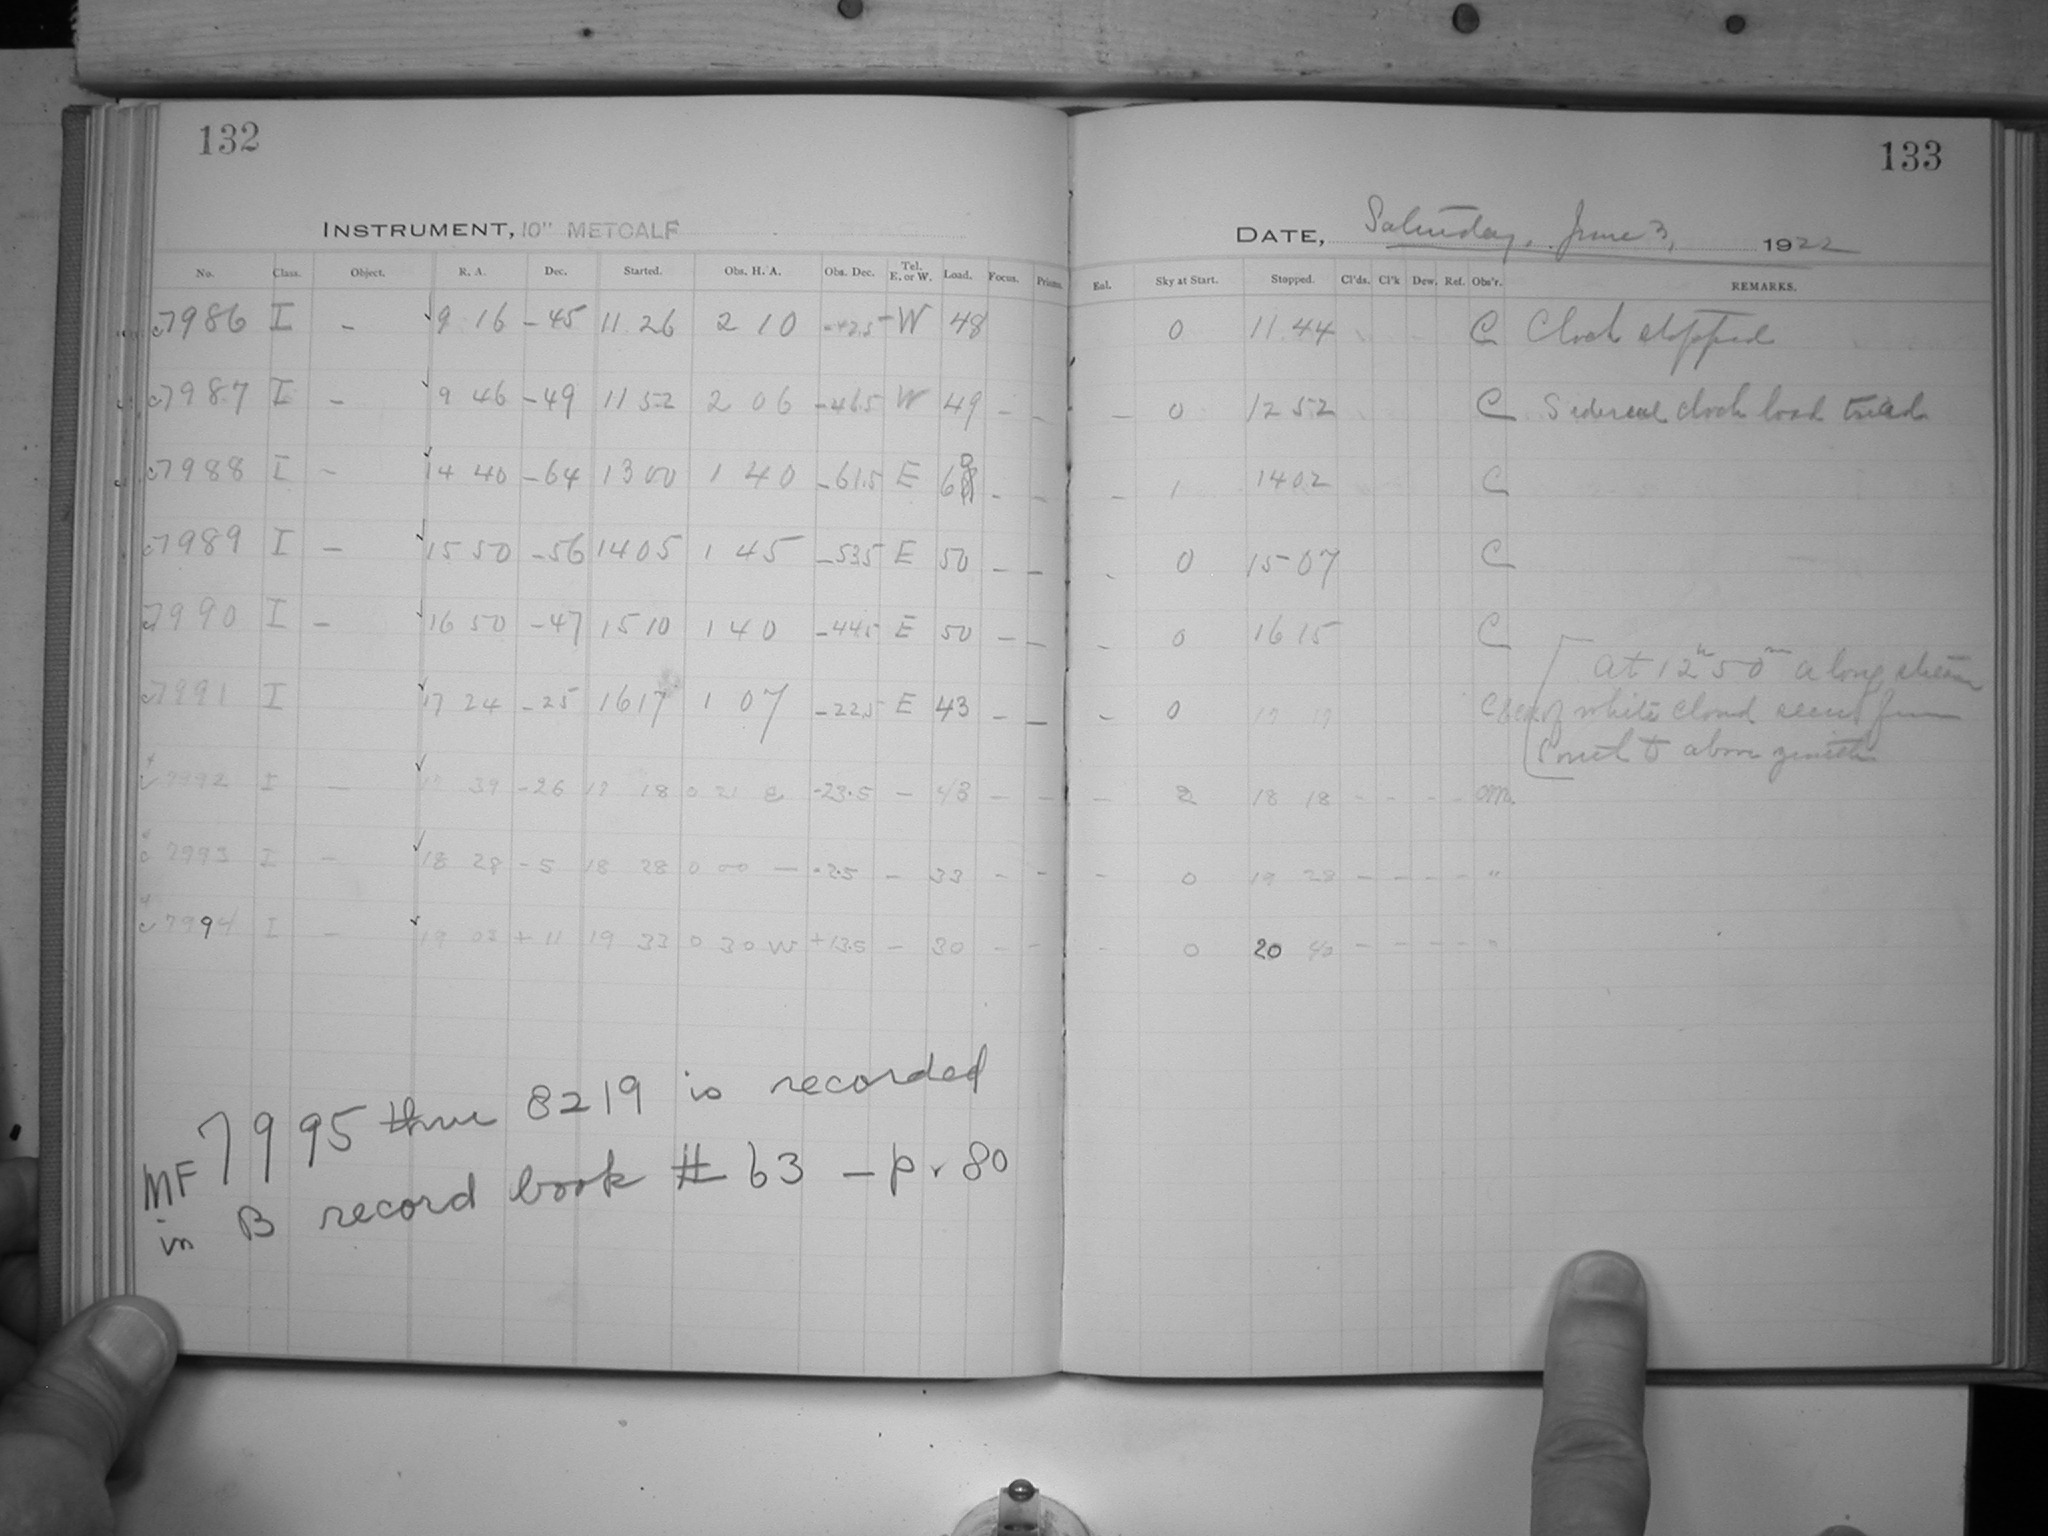 132
INSTRUMENT, 10" METCALF
No. Class. Object. R. A. Dec. Started. Obs. H. A. Obs. Dec. Tel. E. or W. Load. Focus. Prisms.
c7986 I - 9 16 -45 11 26 2 10 -42.5 W 48
c7987 I - 9 46 -49 11 52 2 06 -46.5 W 49 - -
c7988 I - 14 40 -64 13 00 1 40 -61.5 E - -
c7989 I - 15 50 -56 14 05 1 45 -53.5 E 50 - -
c7990 I - 16 50 -47 15 10 1 40 -44.5 E 50 - -
c7991 I 17 24 -25 16 17 1 07 -22.5 E 43 - -
c7992 I - 17 39 -26 17 18 0 21 E -23.5 - 43 - -
c7993 I - 18 28 -5 18 28 0 00 - -2.5 - 33 - -
c7994 I - 19 03 +11 19 33 0 30 W +13.5 - 30 - -
MF 7995 thru 8219 is recorded
in B record book # 63 - p. 80
133
DATE, Saturday, June 3, 1922
Eal. Sky at Start. Stopped. Cl'ds. Cl'k Dew. Ref. Obs'r. REMARKS.
0 11.44 C Clock stopped
- 0 12 52 C Sidereal clock load
- 1 14 02 C
- 0 15 07 C
- 0 16 15 C
At 12h 50m a long stream
- 0 17 17 of white cloud seen from
South to above zenith
- 2 18 18 - - - - OM.
- 0 19 28 - - - - "
- 0 20 - - - - "